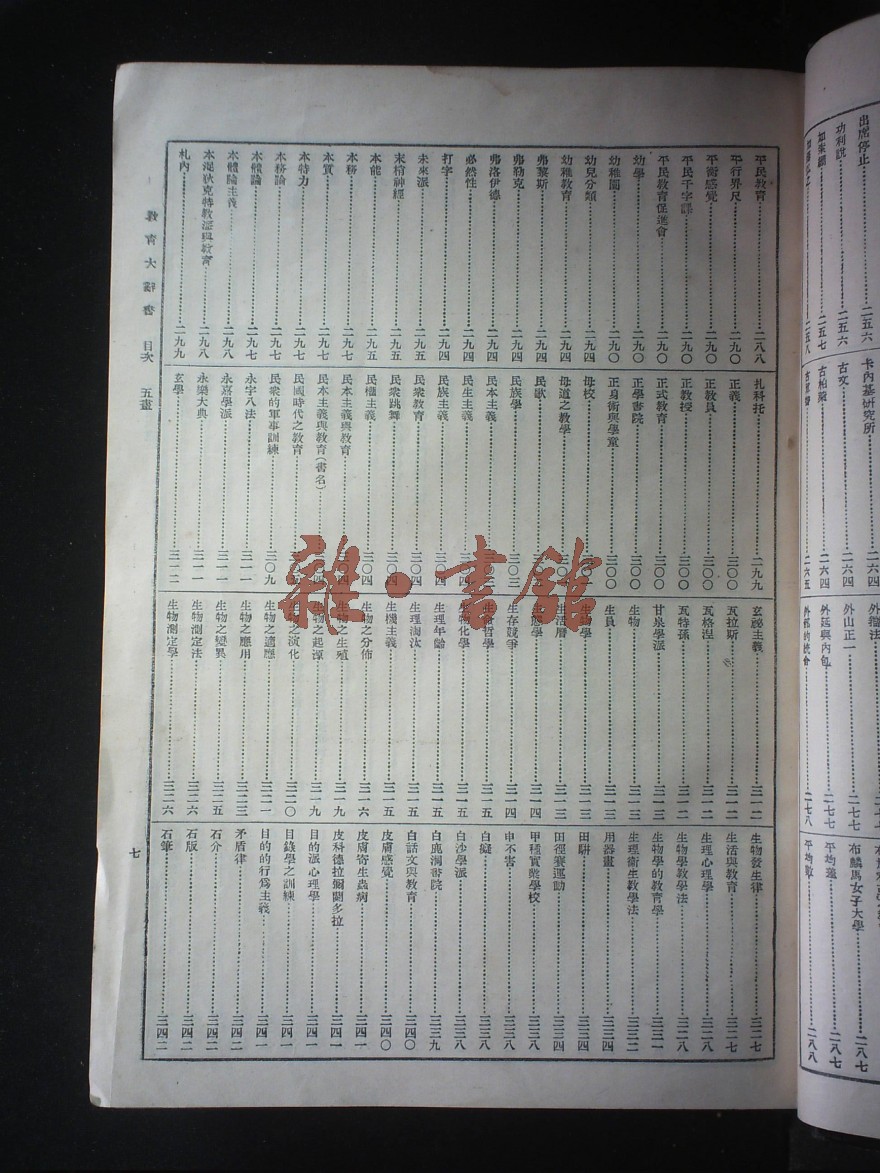 平民教育 二八八
平行界尺 二九〇
平衡感覺 二九〇
平民千字課 二九〇
平民教育促進會 二九〇
幼學 二九〇
幼稚園 二九〇
幼兒分類 二九四
幼稚教育 二九四
弗黎斯 二九四
弗勒克 二九四
弗洛伊德 二九四
必然性 二九四
打字 二九四
未來派 二九五
末梢神經 二九五
本能 二九五
本務 二九七
本質 二九七
本特力 二九七
本務論 二九七
本體論 二九七
本體論主義 二九八
本涅狄克特教派與教育 二九八
札內 二九九
扎科托 二九九
正義 三〇〇
正教員 三〇〇
正教授 三〇〇
正式教育 三〇〇
正學書院 三〇〇
正身術與學童 三〇〇
母校
母道之教學
民歌
民族學 三〇三
民本主義
民生主義
民族主義 三〇四
民衆教育 三〇四
民衆跳舞
民權主義 三〇四
民本主義與教育
民本主義與教育(書名)
民國時代之教育
民衆的軍事訓練 三〇九
永字八法 三一一
永嘉學派 三一一
永樂大典 三一一
玄學 三一二
玄祕主義 三一二
瓦拉斯 三一二
瓦格涅 三一二
瓦特孫 三一二
甘泉學派 三一三
生物 三一三
生員 三一三
生物學
生活曆 三一三
生態學 三一四
生存競爭 三一四
生命哲學 三一五
生物化學 三一五
生理年齡 三一五
生理淘汰 三一五
生機主義 三一五
生物之分佈 三一六
生物之生殖 三一九
生物之起源 三一九
生物之演化 三二〇
生物之適應 三二一
生物之應用 三二三
生物之變異 三二五
生物測定法 三二六
生物測定學 三二六
生物發生律 三二七
生活與教育 三二七
生理心理學 三二八
生物學教學法 三二八
生物學的教育學 三三一
生理衛生教學法 三三二
用器畫 三三四
田駢 三三四
田徑賽運動 三三四
甲種實業學校 三三八
申不害 三三八
白癡 三三八
白沙學派 三三八
白鹿洞書院 三三九
白話文與教育 三四〇
皮膚感覺 三四〇
皮膚寄生蟲病 三四一
皮科德拉彌闌多拉 三四一
目的派心理學 三四一
目錄學之訓練 三四一
目的的行爲主義 三四一
矛盾律 三四二
石介 三四二
石版 三四二
石筆 三四二
教育大辭書 目次 五畫
七
雜·書館
出席停止 二五六
功利說 二五六
二五七
二五八
卡內基研究所 二六四
古文 二六四
古柏嚴 二六四
二六五
外山正一 二七七
外延與內包 二七七
外部的統合 二七八
布麟馬女子大學 二八七
平均數 二八八